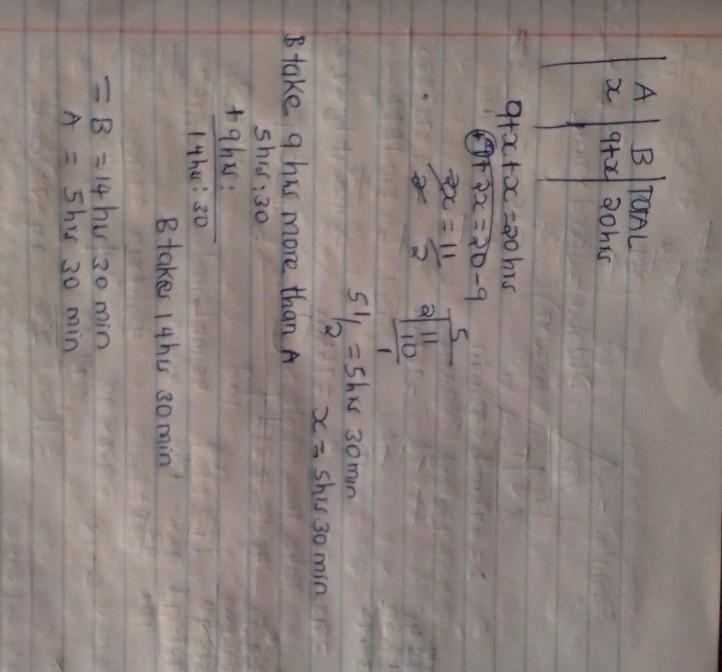 A | B | TOTAL
x | 9+x | 20hrs
9+x+x=20hrs
+9+2x=20-9
2x = 11
2 2
5
2 11
10
1
5 1/2 = 5hrs 30 min
x = 5hrs 30 min
B take 9 hrs more than A
5hrs:30
+9hrs:
14hrs:30
B takes 14hrs 30 min
= B = 14 hrs 30 min
A = 5 hrs 30 min